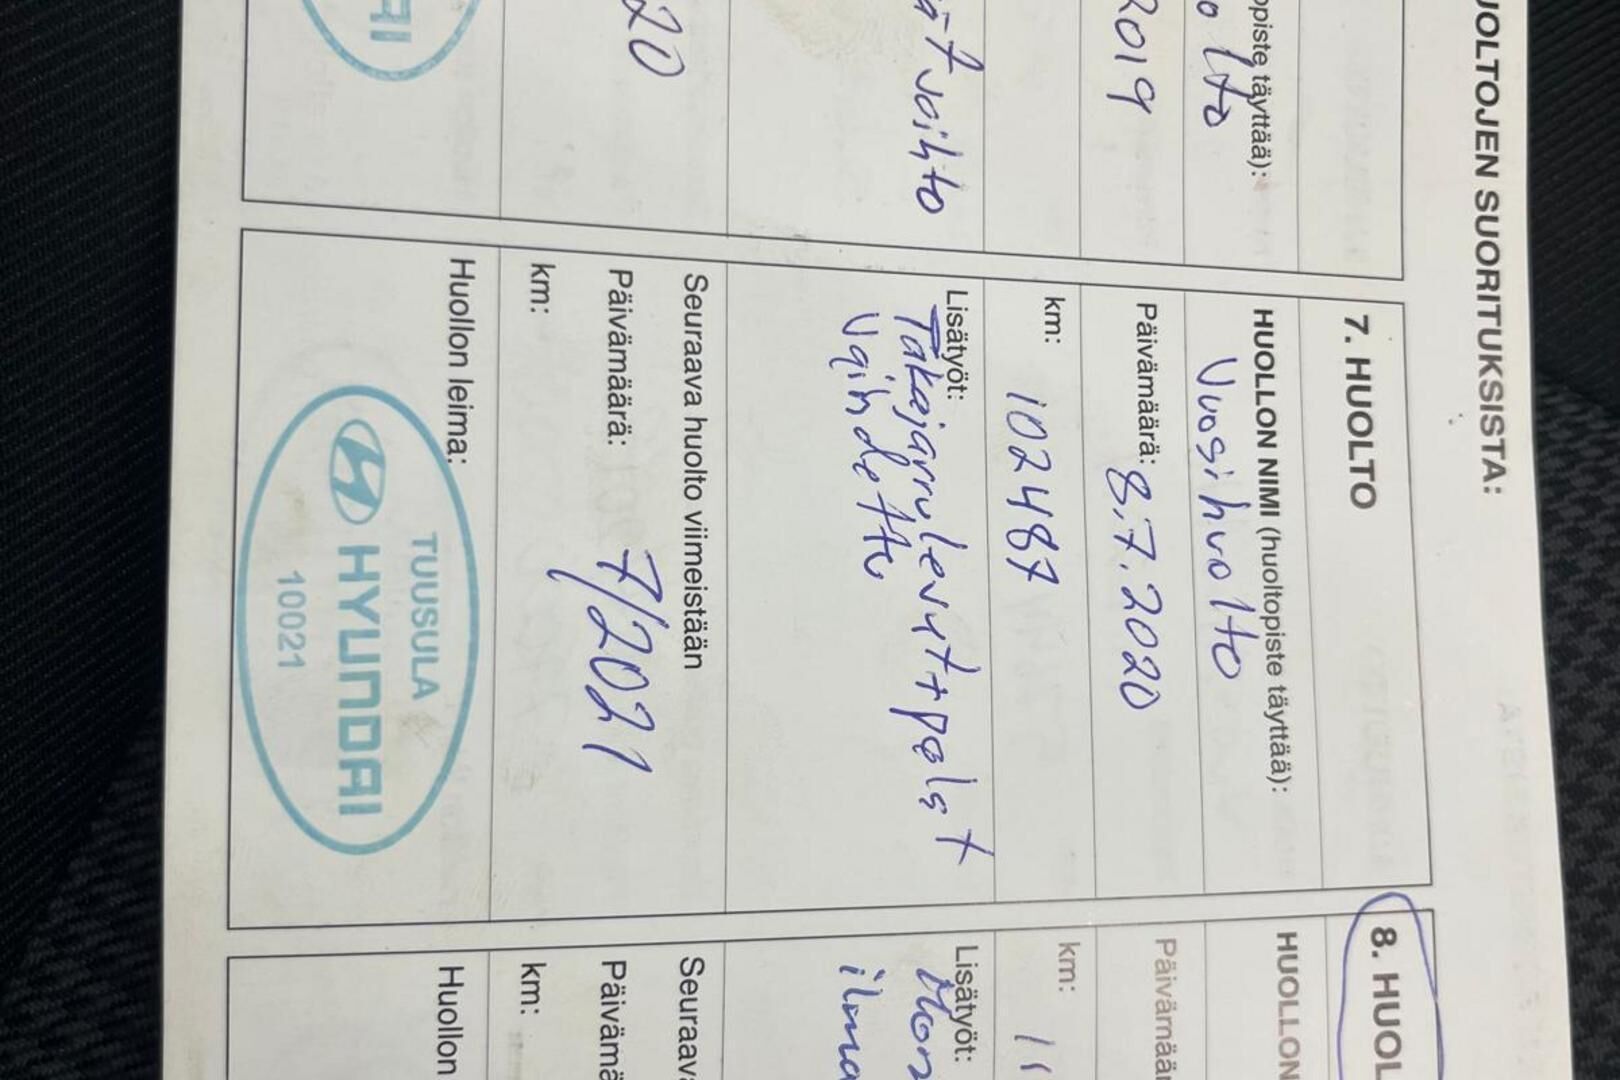 UOLTOJEN SUORITUKSISTA:
opiste täyttää):
olto
2019
vaihto
20
AI
7. HUOLTO
HUOLLON NIMI (huoltopiste täyttää):
Vuosihuolto
Päivämäärä: 8.7.2020
km: 102487
Lisätyöt:
Takajarrulevyt+palat
Vaihdettu
Seuraava huolto viimeistään
Päivämäärä: 7/2021
km:
Huollon leima:
TUUSULA
HYUNDAI
10021
8. HUOL
HUOLLON
Päivämäär
km: 11
Lisätyöt:
ilma
Seuraava
Päivämä
km:
Huollon